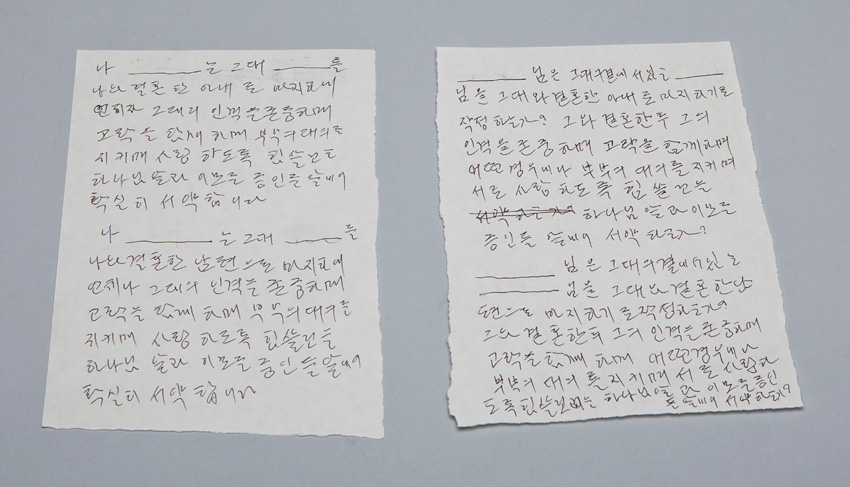 나 ______ 는 그대 ______ 를
나와 결혼한 아내로 마지하며
언제나 그대의 인격을 존중하며
고락을 함께 하며 부부의 대의를
지키며 사랑 하도록 힘쓸것을
하나님 앞과 이모든 증인들 앞에서
확실히 서약 합니다
나 ______ 는 그대 ______ 를
나와 결혼한 남편으로 마지하며
언제나 그대의 인격을 존중하며
고락을 함께 하며 부부의 대의를
지키며 사랑 하도록 힘쓸것을
하나님 앞과 이모든 증인들 앞에서
확실히 서약 합니다
______ 님은 그대의 곁에 서있는 ______
님을 그대와 결혼한 아내로 마지하기로
작정 하는가? 그와 결혼한후 그의
인격을 존중하며 고락을 함께하며
어떤경우에나 부부의 대의를 지키며
서로 사랑 하도록 힘 쓸것을
서약 하는가 하나님 앞과 이모든
증인들 앞에서 서약 하는가?
______ 님은 그대의 곁에 서있는
______ 님을 그대와 결혼한 남
편으로 마지하기로 작정하는가?
그와 결혼한후 그의 인격을 존중하며
고락을 함께 하며 어떤경우에나
부부의 대의를 지키며 서로 사랑하
도록 힘쓸것을 하나님 앞과 이모든 증인
들 앞에서 서약 하는가?